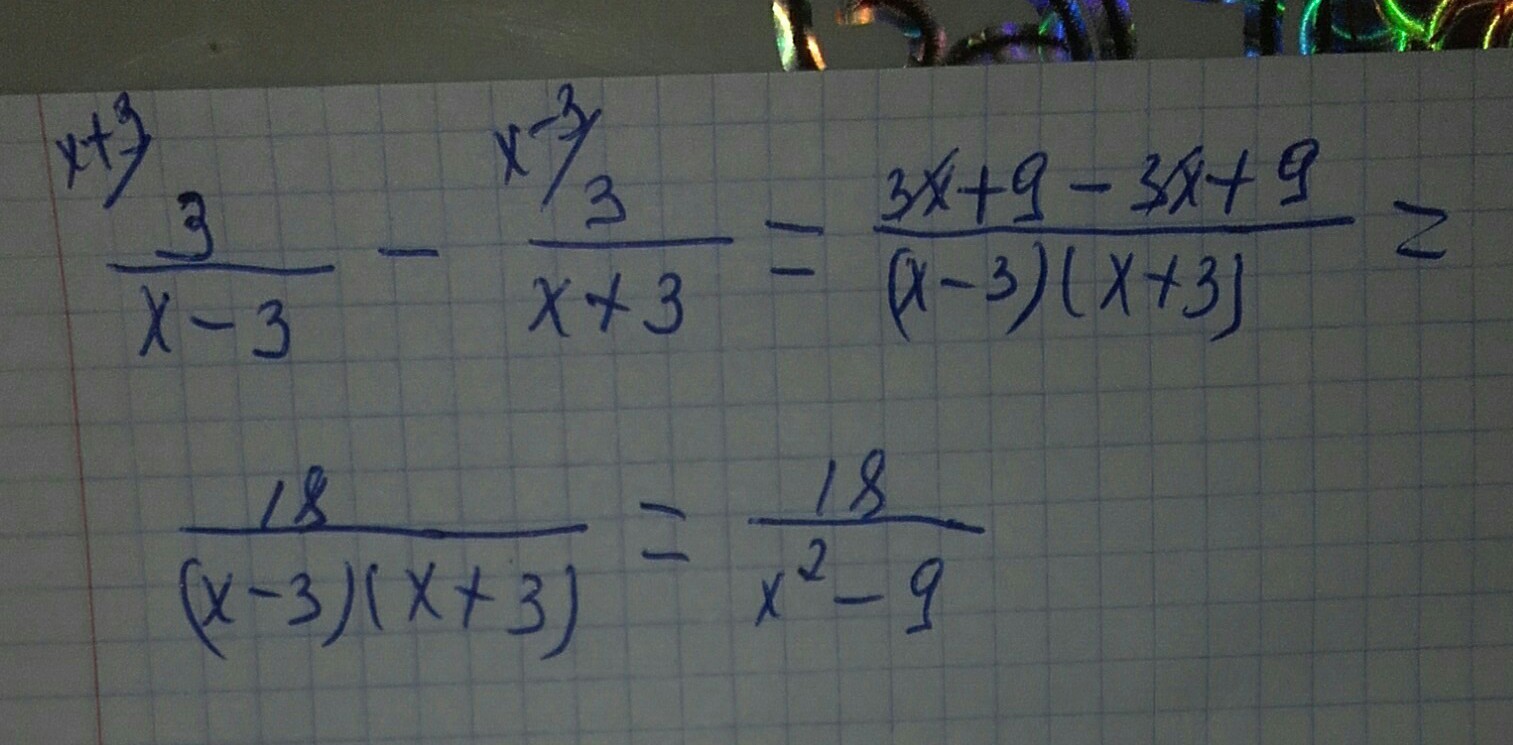 x+3/ 3/(x-3) - x-3/ 3/(x+3) = (3x+9-3x+9)/((x-3)(x+3)) =
18/((x-3)(x+3)) = 18/(x²-9)